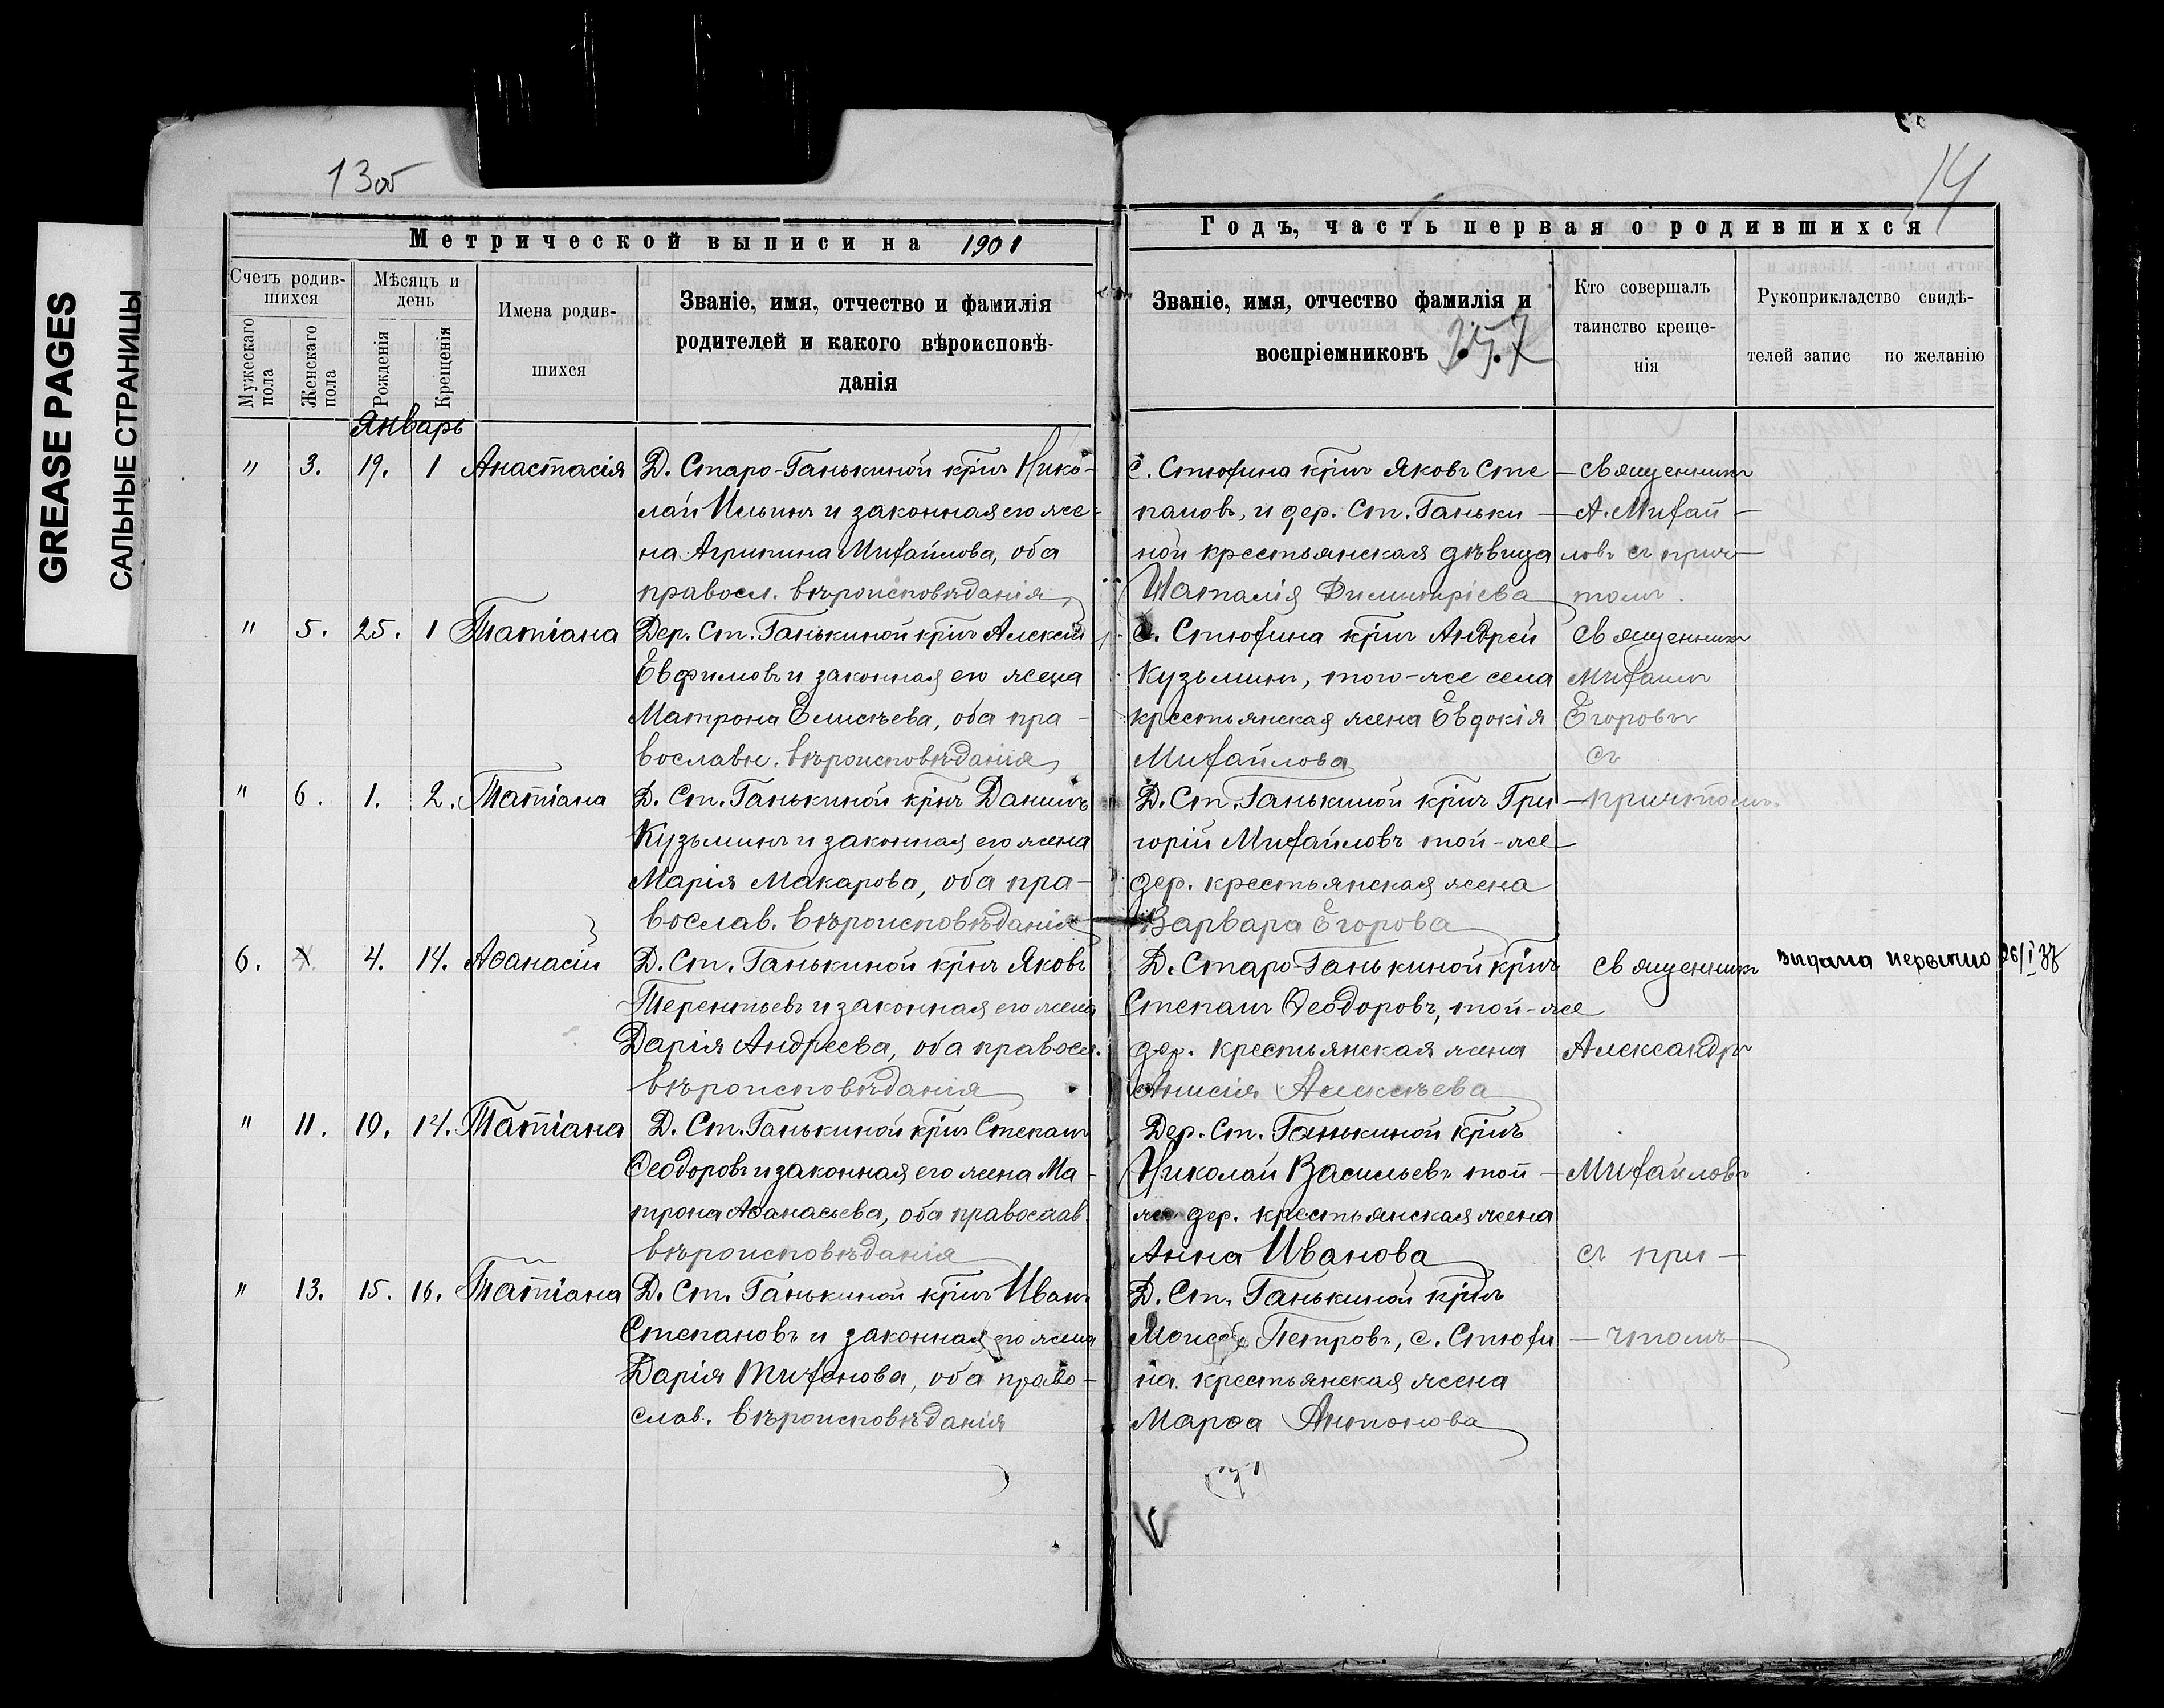 GREASE PAGES
САЛЬНЫЕ СТРАНИЦЫ
13об
Метрической выписи на 1901
Счетъ родив-
шихся
Мѣсяцъ и
день
Имена родив-
шихся
Званіе, имя, отчество и фамилія
родителей и какого вѣроисповѣ-
данія
Мужескаго
пола
Женскаго
пола
Рожденія
Крещенія
Январь
" 3. 19. 1 Анастасія Д. Старо-Ганькиной кр̃нъ Нико-
лай Ильинъ и законная его же-
на Агрипина Михайлова, оба
правосл. вѣроисповѣданія
" 5. 25. 1 Татіана Дер. Ст. Ганькиной кр̃нъ Алексѣй
Евфимовъ и законная его жена
Матрона Елисѣева, оба пра-
вославн. вѣроисповѣданія
" 6. 1. 2. Татіана Д. Ст. Ганькиной кр̃нъ Даніилъ
Кузьминъ и законная его жена
Марія Макарова, оба пра-
вослав. вѣроисповѣданія
6. 4. 14. Аѳанасій Д. Ст. Ганькиной кр̃нъ Яковъ
Терентьевъ и законная его жена
Дарія Андреева, оба правосл.
вѣроисповѣданія
" 11. 10. 14. Татіана Д. Ст. Ганькиной кр̃нъ Степанъ
Ѳеодоровъ и законная его жена Ма-
трона Аѳанасьева, оба православ.
вѣроисповѣданія
" 13. 15. 16. Татіана Д. Ст. Ганькиной кр̃нъ Иванъ
Степановъ и законная его жена
Дарія Тихонова, оба право-
слав. вѣроисповѣданія
14
Годъ, часть первая о родившихся
Званіе, имя, отчество фамилія и
воспріемниковъ
Кто совершалъ
таинство креще-
нія
Рукоприкладство свидѣ-
телей запис по желанію
С. Стюхина кр̃нъ Яковъ Сте- Священникъ
пановъ, и дер. Ст. Ганьки- А. Михай-
ной крестьянская дѣвица ловъ съ прич-
Наталія Димитріева томъ.
С. Стюхина кр̃нъ Андрей Священникъ
Кузьминъ, того-же села Михаилъ
крестьянская жена Евдокія Егоровъ
Михайлова съ
Д. Ст. Ганькиной кр̃нъ Гри- причтомъ.
горій Михайловъ той-же
дер. крестьянская жена
Варвара Егорова
Д. Старо-Ганькиной кр̃нъ Священникъ видана
Степанъ Ѳеодоровъ, той-же
дер. крестьянская жена Александръ
Анисія Алексѣева
Дер. Ст. Ганькиной кр̃нъ
Николай Васильевъ той- Михайловъ
же дер. крестьянская жена
Анна Иванова съ при-
Д. Ст. Ганькиной кр̃нъ
Моисей Петровъ, с. Стюхи- чтомъ
на крестьянская жена
Марѳа Антонова